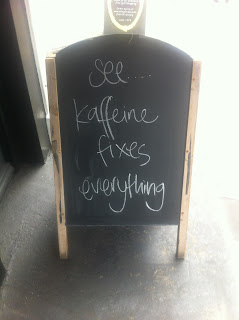 see....
kaffeine
fixes
everything